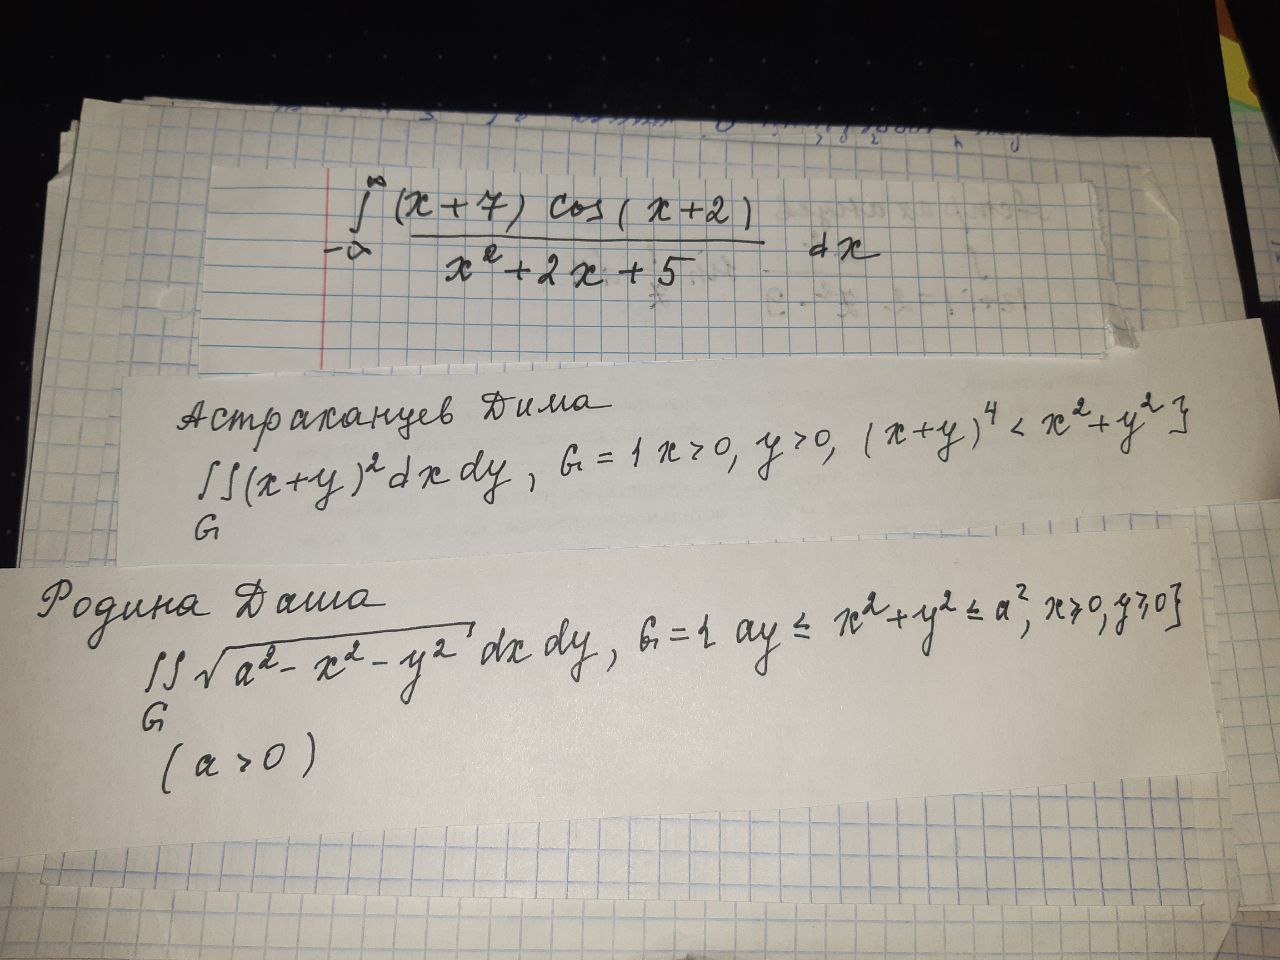 ∞
∫ (x+7) cos(x+2) dx
-∞ x² + 2x + 5
Астраханцев Дима
∬(x+y)² dx dy, G = { x>0, y>0, (x+y)⁴ < x²+y² }
G
Родина Даша
∬ √(a² - x² - y²) dx dy, G = { ay ≤ x²+y² ≤ a², x≥0, y≥0 }
G
(a > 0)